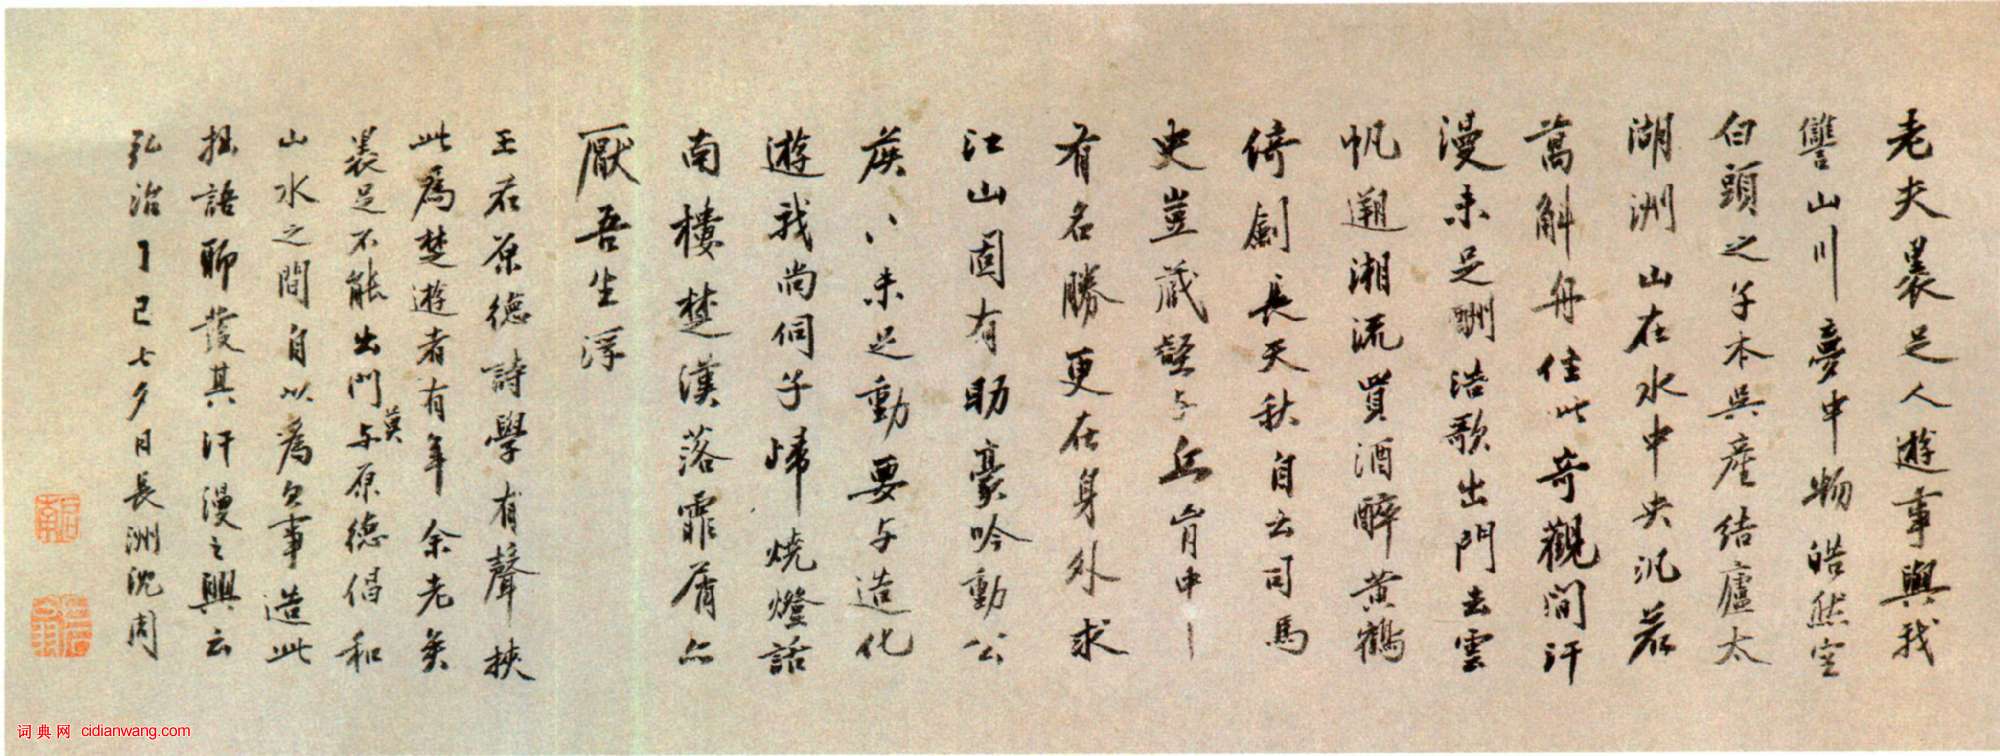 老夫裹足人遊事與我
讐山川夢中物皓然空
白頭之子本吳產結廬太
湖洲山在水中央汎若
萬斛舟住此奇觀間汗
漫未足酬浩歌出門去雲
帆遡湘流買酒醉黃鶴
倚劍長天秋自云司馬
史豈藏壑与丘胷中丨
有名勝更在身外求
江山固有助豪吟動公
矦八未足動要与造化
遊我尚伺子歸燒燈話
南樓楚漢落霏屑亦
厭吾生浮
王君原德詩學有聲挾
此為楚遊者有年余老矣
裹足不能出門与原德倡和
莫
山水之間自以為欠事造此
拙語聊發其汗漫之興云
弘治丁巳七夕日長洲沈周
啟南
词典网 cidianwang.com